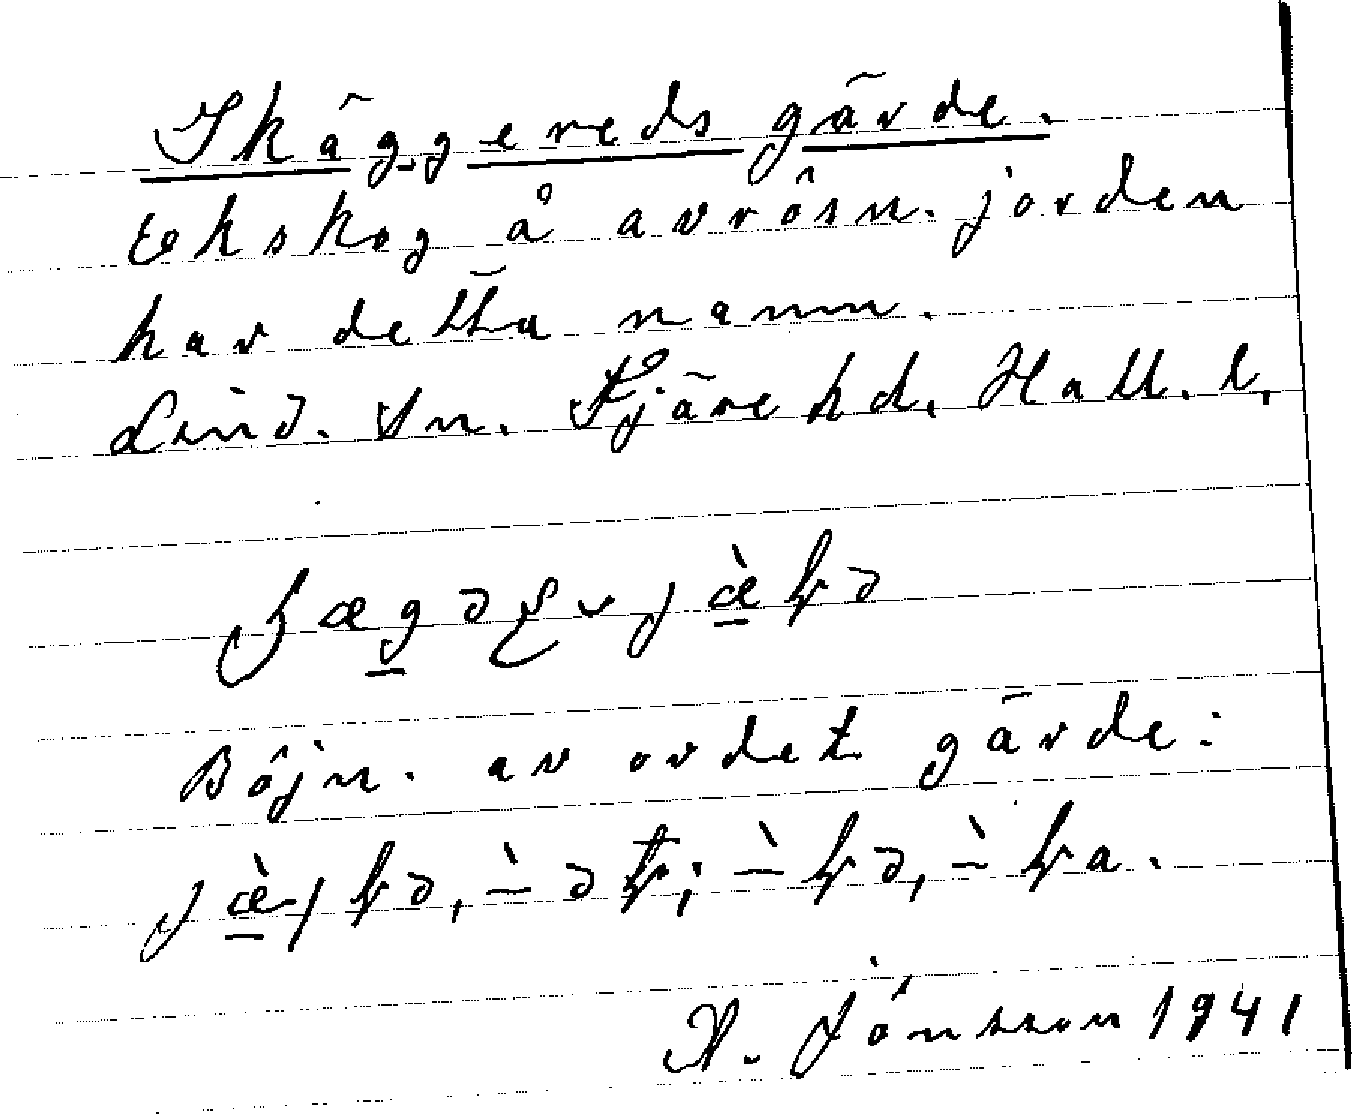 Skäggereds gärde.
Ekskog å avrösn. jorden
har detta namn.
Lind. Sn. Fjäre hd. Hall. l.
Böjn. av ordet gärde:
J. Jönsson 1941